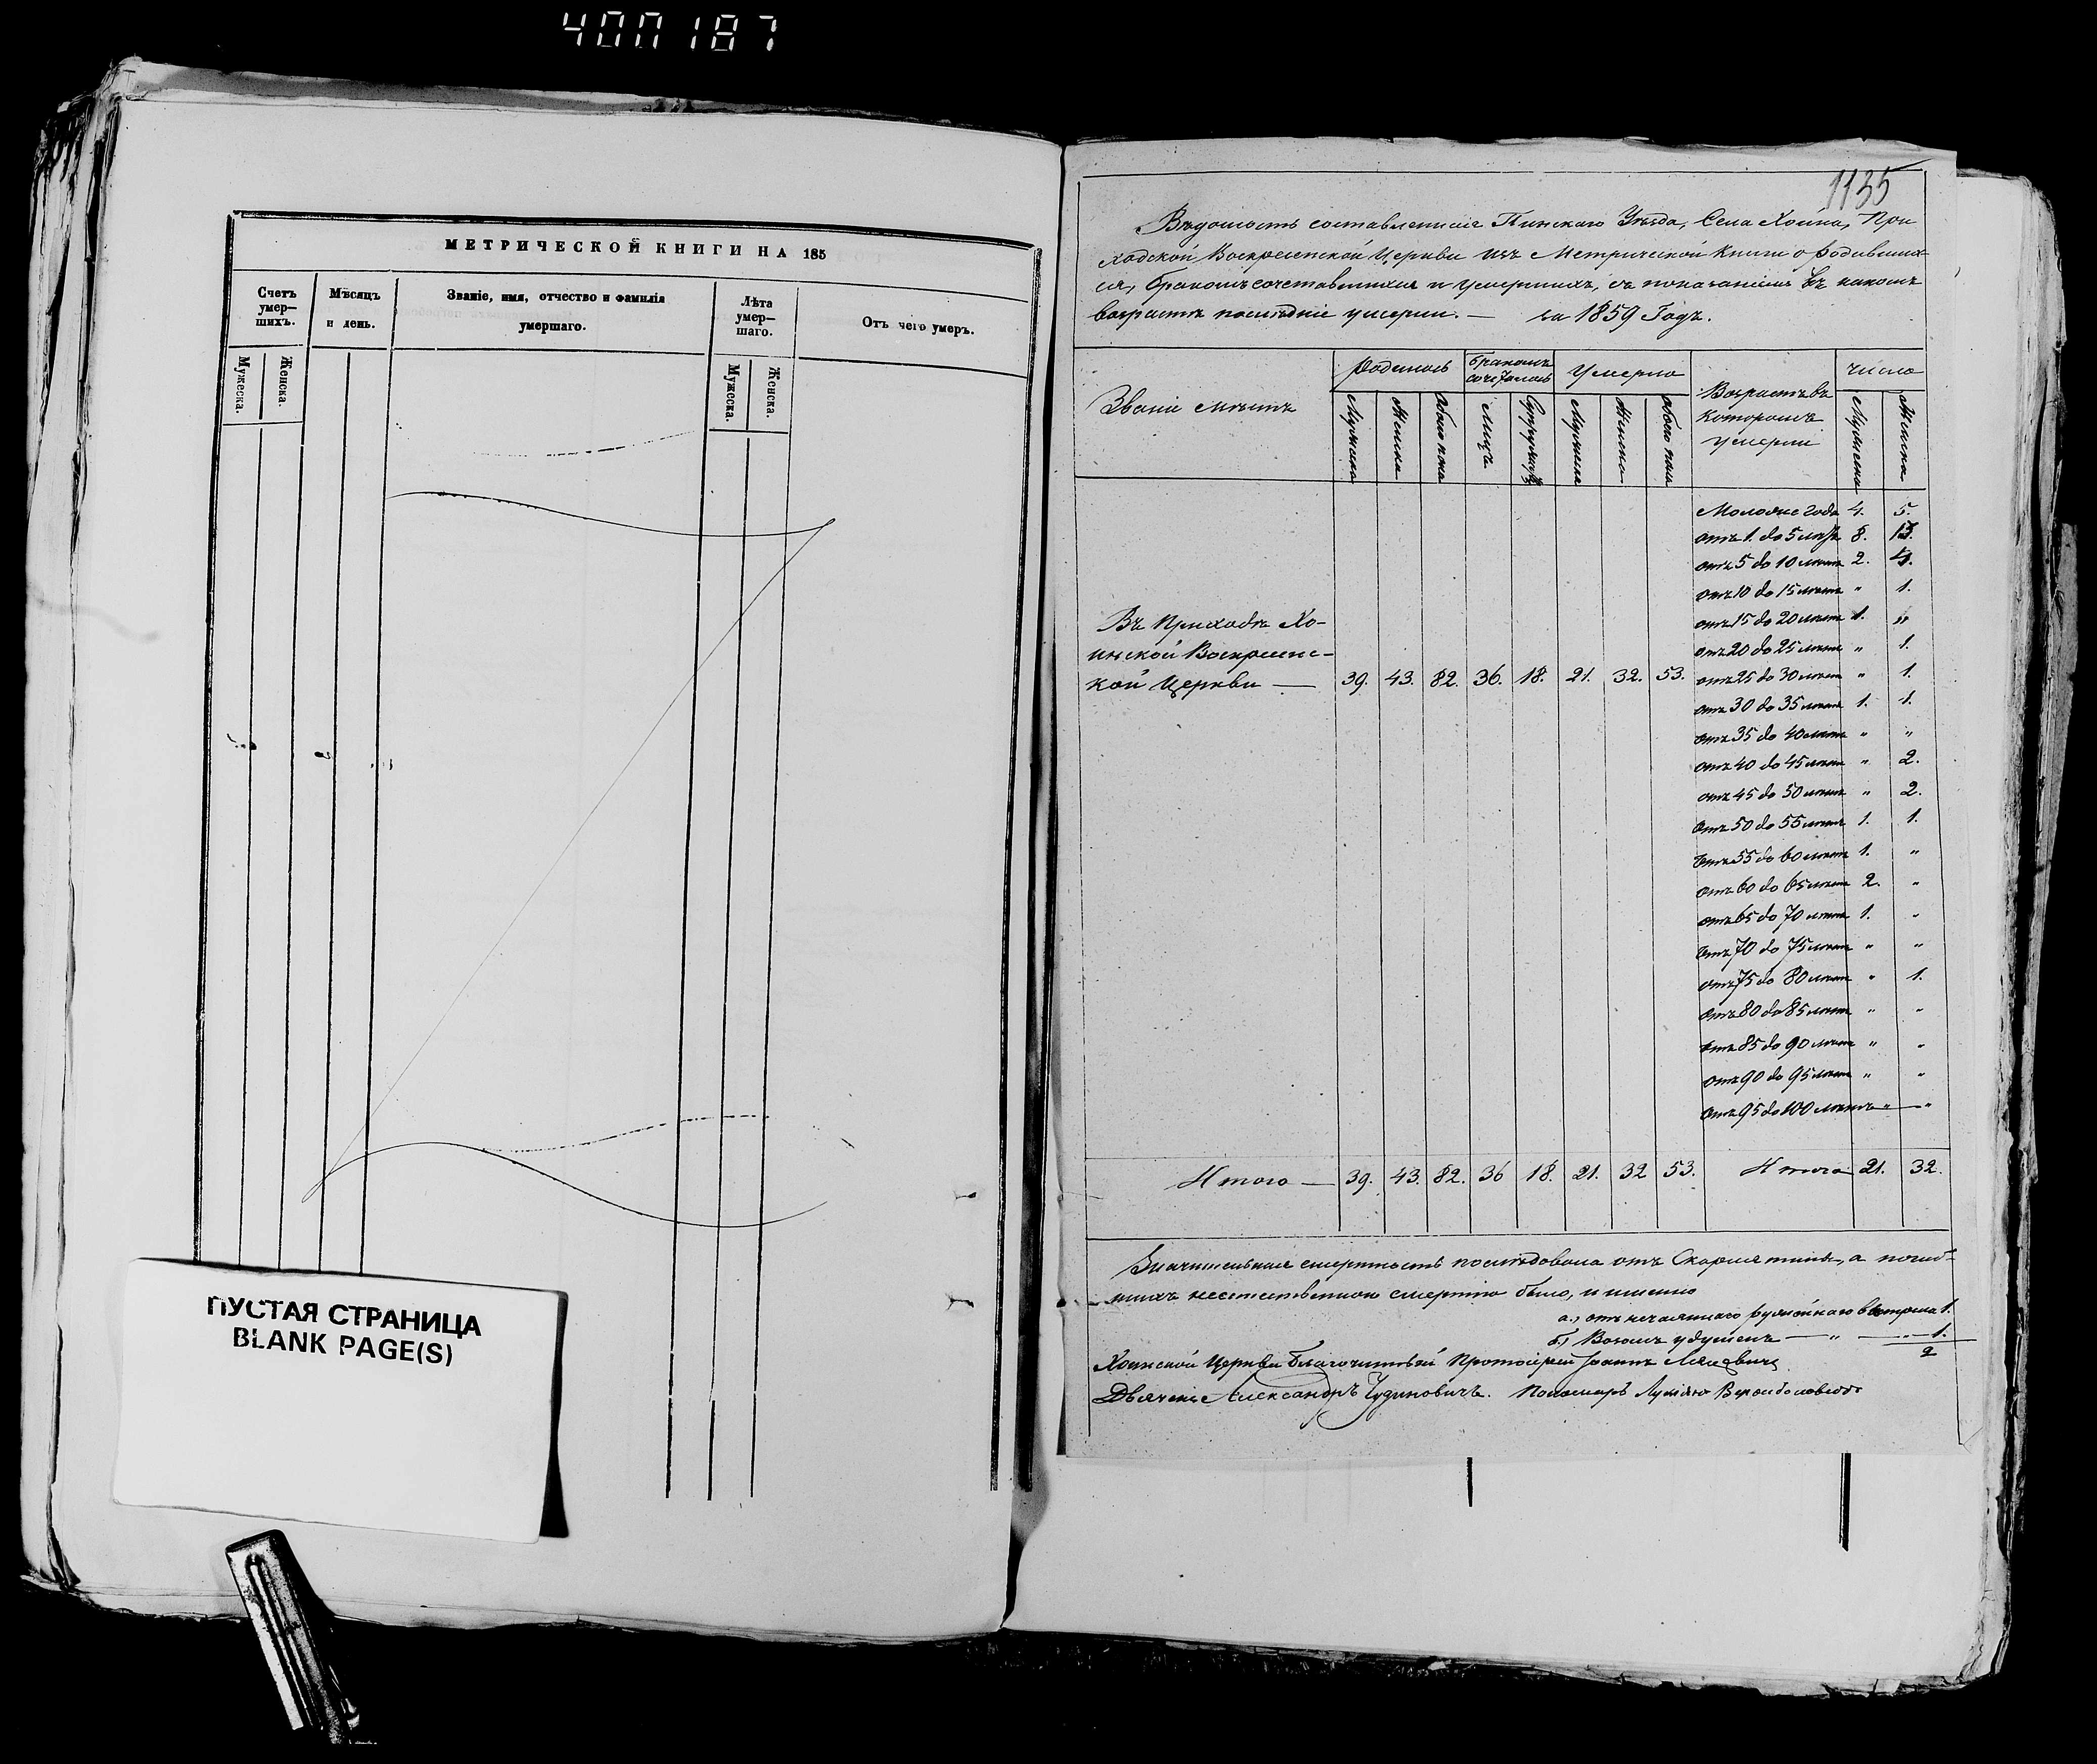 400187
МЕТРИЧЕСКОЙ КНИГИ НА 185
Счетъ умер–шихъ.
Мѣсяцъ и день.
Званіе, имя, отчество и фамилія умершаго.
Лѣта умер–шаго.
Отъ чего умеръ.
Мужеска.
Женска.
Мужеска.
Женска.
ПУСТАЯ СТРАНИЦА
BLANK PAGE(S)
1135
Вѣдомость составленная Пинскаго Уѣзда, Села Хойна, При-
ходской Воскресенской Церкви изъ Метрической Книги о родивших-
ся, бракомъ сочетавшихся и умершихъ, съ показаніемъ въ какомъ
возрастѣ послѣдніе умерли. — за 1859 Годъ.
Званіе мѣстъ
Родилось
бракомъ сочеталось
Умерло
Возрастъ въ которомъ умерли
число
Мужеска
Женска
Обоего пола
Лицъ
Супружествъ
Мужеска
Женска
обоего пола
Мужеска
Женска
Моложе года 4. 5.
отъ 1. до 5 лѣтъ 8. 13.
отъ 5 до 10 лѣтъ 2. 4.
отъ 10 до 15 лѣтъ " 1.
отъ 15 до 20 лѣтъ 1. "
отъ 20 до 25 лѣтъ " 1.
отъ 25 до 30 лѣтъ " 1.
отъ 30 до 35 лѣтъ 1. 1.
отъ 35 до 40 лѣтъ " "
отъ 40 до 45 лѣтъ " 2.
отъ 45 до 50 лѣтъ " 2.
отъ 50 до 55 лѣтъ 1. 1.
отъ 55 до 60 лѣтъ 1. "
отъ 60 до 65 лѣтъ 2. "
отъ 65 до 70 лѣтъ 1. "
отъ 70 до 75 лѣтъ " "
отъ 75 до 80 лѣтъ " 1.
отъ 80 до 85 лѣтъ " "
отъ 85 до 90 лѣтъ " "
отъ 90 до 95 лѣтъ " "
отъ 95 до 100 лѣтъ " — "
Въ Приходѣ Хо-
инской Воскресенс-
кой Церкви — 39. 43. 82. 36. 18. 21. 32. 53.
Итого — 39. 43. 82. 36 18. 21. 32 53. Итого 21. 32.
Значительная смертность послѣдовала отъ Скарлятины, а погиб-
шихъ неестественною смертію было, и именно
а., отъ нечаяннаго ружейнаго выстрѣла 1.
б.) Возомъ удушенъ — " — 1.
2
Хоинской Церкви благочинный Протоіерей Іоаннъ
Дьячекъ Александръ Чудиновичъ. Пономарь